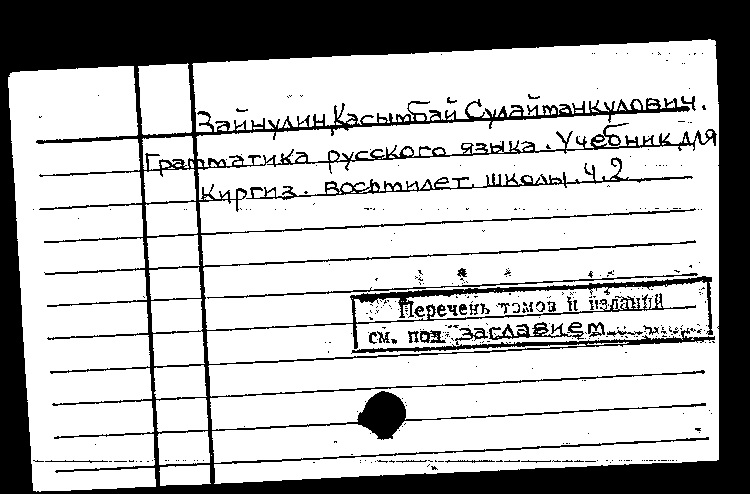 Зайнулин, Касымбай Сулайманкулович.
Грамматика русского языка. Учебник для
киргиз. восьмилет. школы. ч.2
Перечень томов и изданий
см. под заглавием